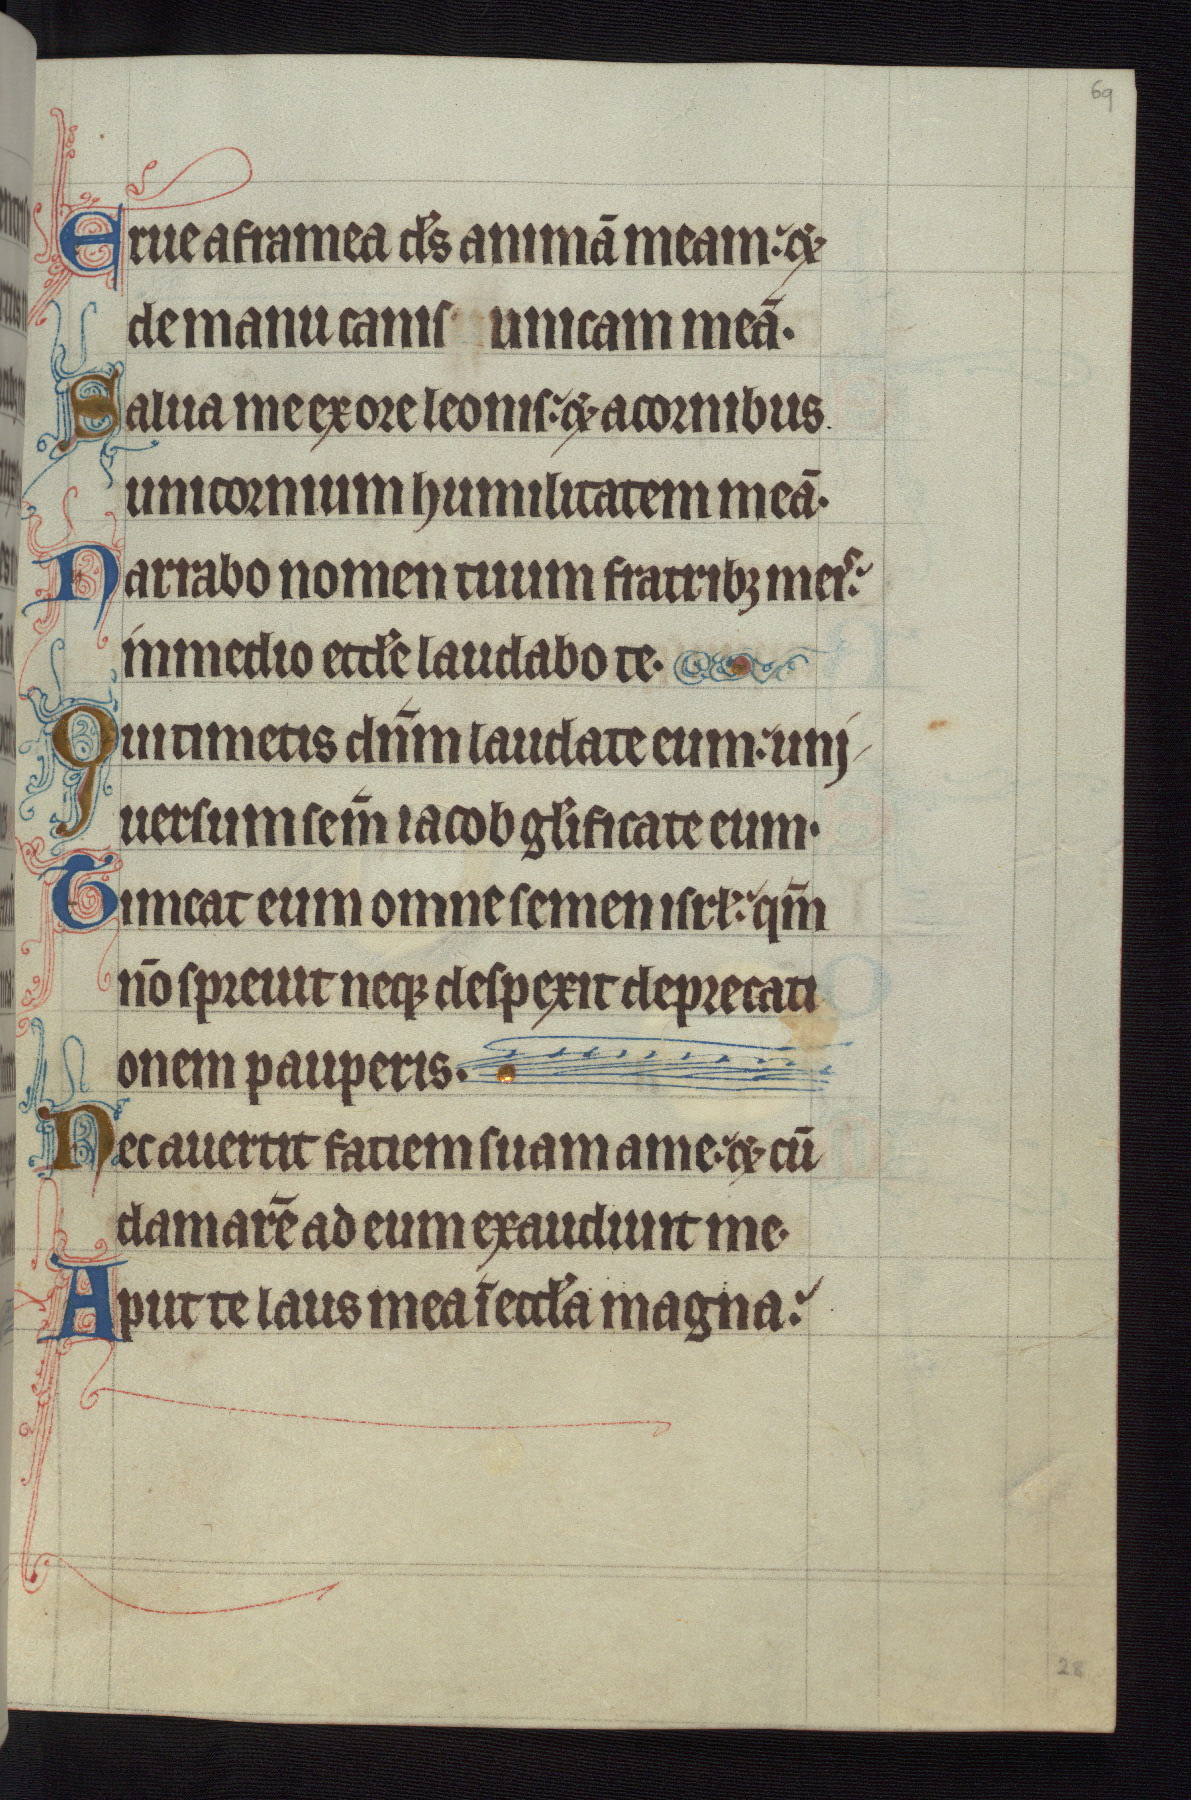 69
Erue a framea ds̄ animā meam: ⁊
de manu canis unicam meā.
Salua me ex ore leonis: ⁊ a cornibus
unicornium humilitatem meā.
Narrabo nomen tuum fratribꝫ meis:
in medio eccl̄e laudabo te.
Qui timetis dn̄m laudate eum: uni
uersum sem̄ iacob gl̄ificate eum.
Timeat eum omne semen isrl̄: qm̄
nō spreuit neqꝫ despexit deprecati
onem pauperis.
Nec auertit faciem suam a me: ⁊ cū
clamarē ad eum exaudiuit me.
Aput te laus mea ī eccl̄a magna:
28